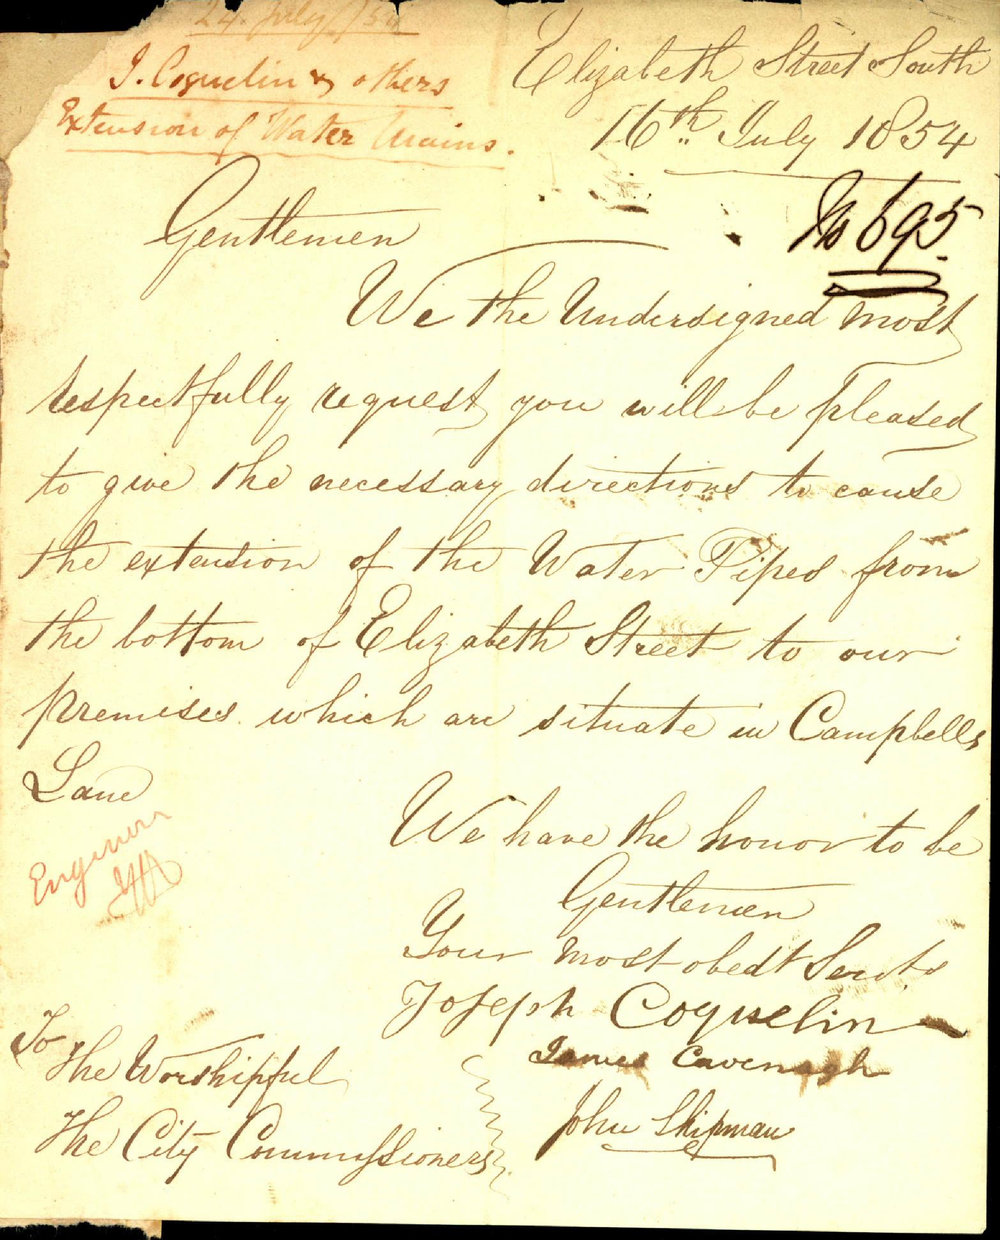 24. July /54
J. Coquelin & others
Extension of Water Mains.
Elizabeth Street South
16th July 1854
No 695.
Gentlemen
We the Undersigned most
respectfully request you will be pleased
to give the necessary directions to cause
the extension of the Water Pipes from
the bottom of Elizabeth Street to our
premises which are situate in Campbells
Lane
Engineer
We have the honor to be
Gentlemen
Your most obedt Servts
Joseph Coquelin
James Cavenagh
John Shipman
To
The Worshipful
The City Commissioners